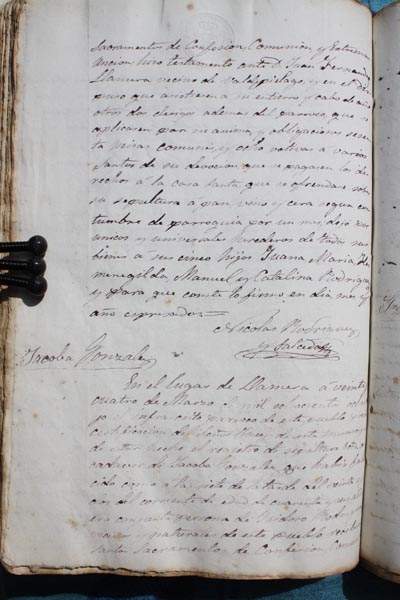 Sacramentos de Confesion Comunión, y Extrema
uncion hizo testamento ante D. Juan Fernandez
Llamera vecino de Valdepielago, y en el dis
puso que asistiesen a su entierro y cabo de año
otros dos clerigos ademas del parroco que se
aplicasen por su anima, y obligaciones sesen
ta misas comunes, y ocho votivas a varios
Santos de su devocion que se pagasen los de
rechos á la casa santa, que se ofrendase sobre
su sepultura a pan, vino y cera segun cos
tumbre de parroquia por un mes, dejó por
unicos y universales herederos de todos sus
bienes a sus cinco hijos Juana Maria, He
menegilda Manuel y Catalina Rodriguez
y para que conste lo firmo en dia, mes y
año expresados=
Nicolas Rodriguez
y Salcedo
Jacoba Gonzalez
En el lugar de Llamera a veinte
cuatro de Marzo de mil ochocientos
yo el infrascrito parroco de este pueblo
certificacion del
de estar hecho el registro de
cadaver de Jacoba Gonzalez que habia falle
cido como á las siete de la tarde del veinte
del corriente de edad de cuarenta y
consorte de Isidoro
y naturales de este pueblo
santos Sacramentos de Confesion Comu